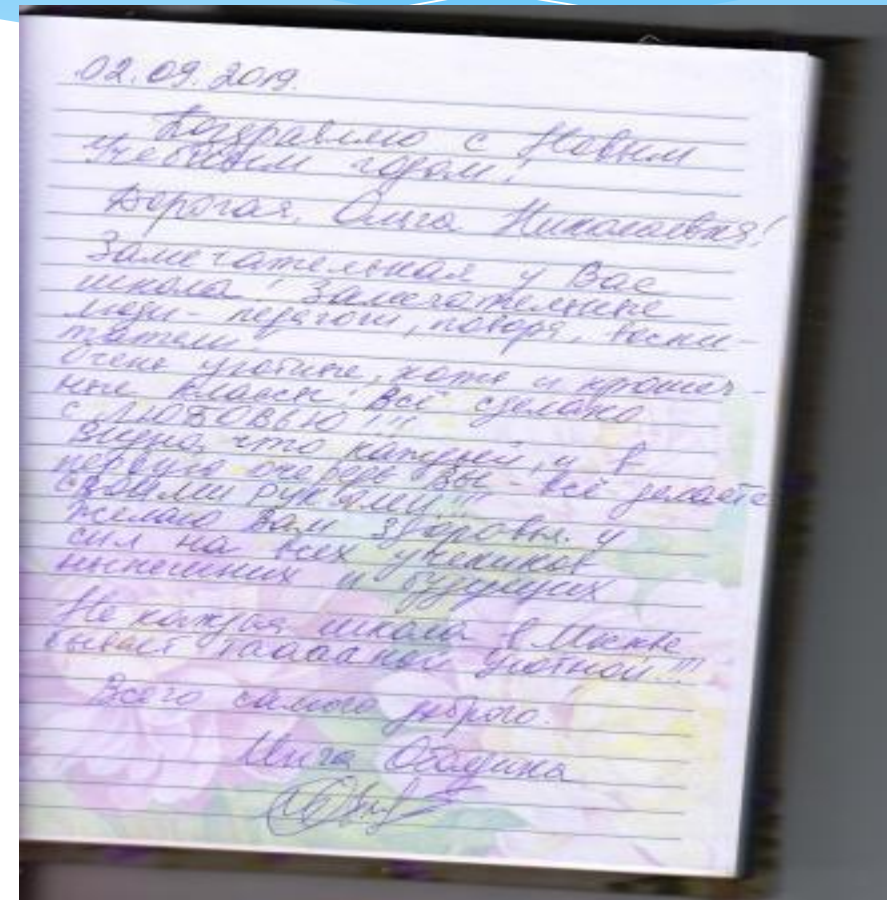 02.09.2019.
Поздравляю с Новым
Учебным годом!
Дорогая, Ольга Николаевна!
Замечательная у Вас
школа! Замечательные
люди - педагоги, повора, воспи-
татели
Очень уютные, хотя и крошеч-
ные классы! Всё сделано
с ЛЮБОВЬЮ!!!
Видно, что каждый, и в
первую очередь Вы - всё делаете
СВОИМИ РУКАМИ!!!
Желаю Вам здоровья и
сил на всех учеников
нынешних и будущих
Не каждая школа в Москве
бывает таааакой уютной!!!
Всего самого доброго.